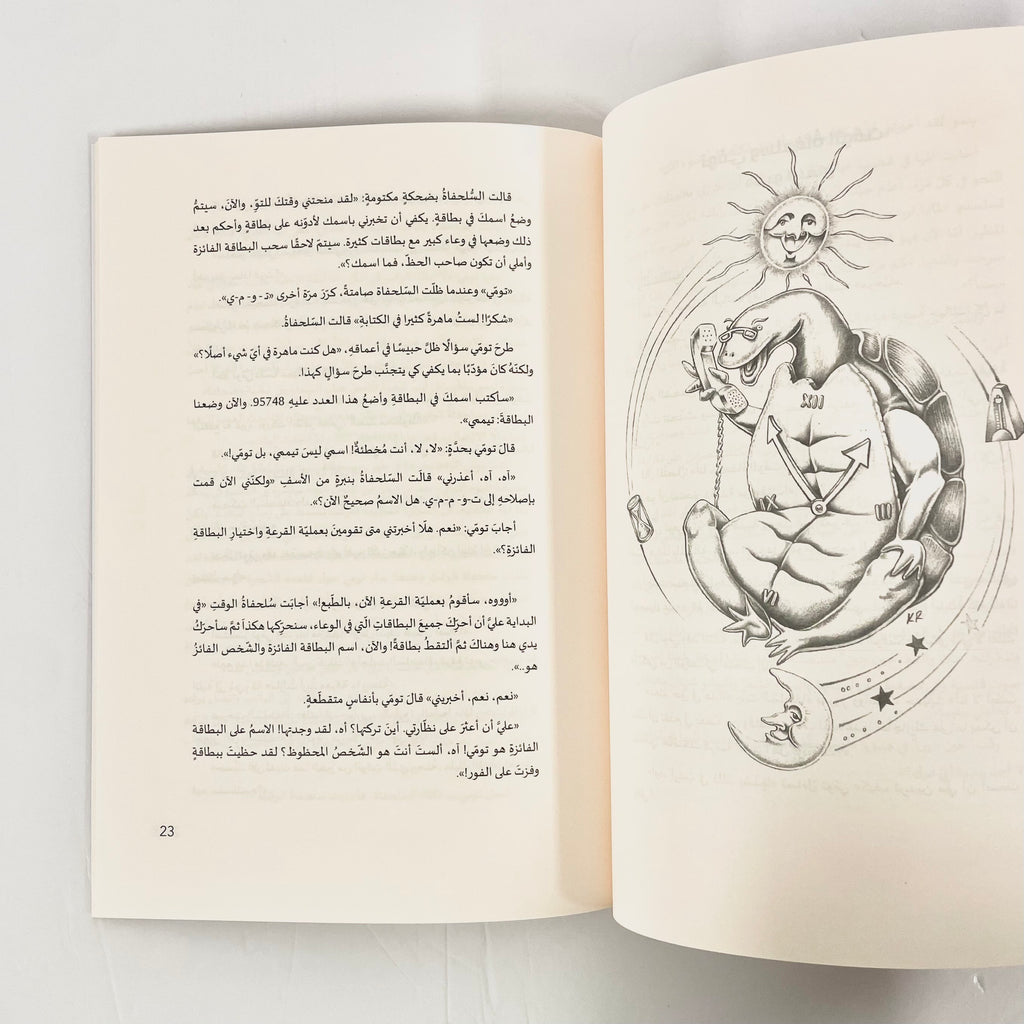 قالت السُّلحفاةُ بضحكةٍ مكتومةٍ: «لقد منحتني وقتكَ للتوِّ، والآنَ، سيتمُّ
وضعُ اسمكَ في بطاقةٍ. يكفي أن تخبرني باسمك لأدوّنه على بطاقةٍ وأحكم بعد
ذلك وضعها في وعاء كبير مع بطاقات كثيرة. سيتمّ لاحقًا سحب البطاقة الفائزة
وأملي أن تكون صاحب الحظّ، فما اسمك؟».
«تومّي» وعندما ظلّت السّلحفاة صامتةً، كرّرَ مرّة أخرى «تـ - و - م - ي».
«شكرًا! لستُ ماهرةً كثيرا في الكتابةِ» قالت السّلحفاةُ.
طرحَ تومّي سؤالًا ظلَّ حبيسًا في أعماقهِ، «هل كنت ماهرة في أيّ شيء أصلًا؟»
ولكنّهُ كانَ مؤدّبًا بما يكفي كي يتجنَّب طرحَ سؤالٍ كهذا.
«سأكتب اسمكَ في البطاقةِ وأضعُ هذا العدد عليهِ 95748. والآن وضعنا
البطاقةَ: تيممي».
قالَ تومّي بحدَّةٍ: «لا، لا، أنت مُخطئةٌ! اسمي ليسَ تيممي، بل تومّي!».
«آه، آه، أعذرني» قالَت السّلحفاةُ بنبرةٍ من الأسفِ «ولكنّني الآن قمت
بإصلاحهِ إلى ت-و- م-م-ي. هل الاسمُ صحيحٌ الآن؟».
أجابَ تومّي: «نعم. هلّا أخبرتني متى تقومينَ بعمليّة القرعةِ واختيارِ البطاقةِ
الفائزة؟».
«أوووه، سأقومُ بعمليّة القرعةِ الآن، بالطّبعِ!» أجابَت سُلحفاةُ الوقتِ «في
البداية عليَّ أن أحرِّكَ جميعَ البطاقاتِ الّتي في الوعاء، سنحرّكها هكذا ثمَّ سأحرّكُ
يدي هنا وهناكَ ثمَّ ألتقطُ بطاقةً! والآن، اسم البطاقة الفائزة والشّخص الفائزُ
هو..».
«نعم، نعم، أخبريني» قالَ تومّي بأنفاسٍ متقطّعةٍ.
«عليَّ أن أعثرَ على نظّارتي. أينَ تركتها؟ آه، لقد وجدتها! الاسمُ على البطاقة
الفائزةِ هو تومّي! آه، ألستَ أنتَ هو الشّخصُ المحظوظ؟ لقد حظيتَ ببطاقةٍ
وفزتَ على الفور!».
23
XII
III
VI
IX
KR